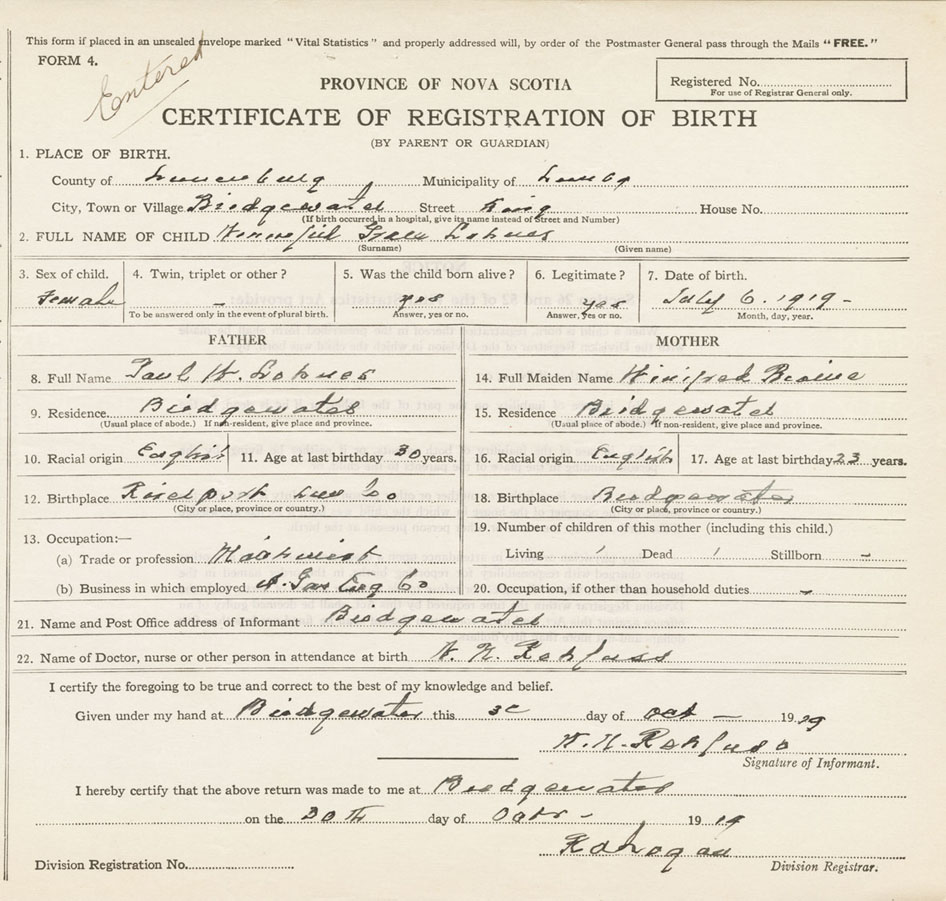 This form if placed in an unsealed envelope marked "Vital Statistics" and properly addressed will, by order of the Postmaster General pass through the Mails "FREE."
FORM 4.
Entered
Registered No.
For use of Registrar General only.
PROVINCE OF NOVA SCOTIA
CERTIFICATE OF REGISTRATION OF BIRTH
(BY PARENT OR GUARDIAN)
1. PLACE OF BIRTH.
County of Lunenburg Municipality of
City, Town or Village Bridgewater Street King House No.
(If birth occurred in a hospital, give its name instead of Street and Number)
2. FULL NAME OF CHILD Lohnes
(Surname) (Given name)
3. Sex of child. 4. Twin, triplet or other? 5. Was the child born alive? 6. Legitimate? 7. Date of birth.
Female – yes yes July 6. 1919 -
To be answered only in the event of plural birth. Answer, yes or no. Answer, yes or no. Month, day, year.
FATHER MOTHER
8. Full Name Paul H. Lohnes 14. Full Maiden Name Winifred
9. Residence Bridgewater 15. Residence Bridgewater
(Usual place of abode.) If non-resident, give place and province. (Usual place of abode.) If non-resident, give place and province.
10. Racial origin English 11. Age at last birthday 30 years. 16. Racial origin English 17. Age at last birthday 23 years.
12. Birthplace Co 18. Birthplace Bridgewater
(City or place, province or country.) (City or place, province or country.)
19. Number of children of this mother (including this child.)
13. Occupation:—
(a) Trade or profession Machinist Living / Dead / Stillborn –
(b) Business in which employed Eng Co 20. Occupation, if other than household duties –
21. Name and Post Office address of Informant Bridgewater
22. Name of Doctor, nurse or other person in attendance at birth Rehfuss
I certify the foregoing to be true and correct to the best of my knowledge and belief.
Given under my hand at Bridgewater this 30 day of Oct – 19 19
Rehfuss
Signature of Informant.
I hereby certify that the above return was made to me at Bridgewater
on the 30th day of Octr - 19 19
Division Registration No. Division Registrar.